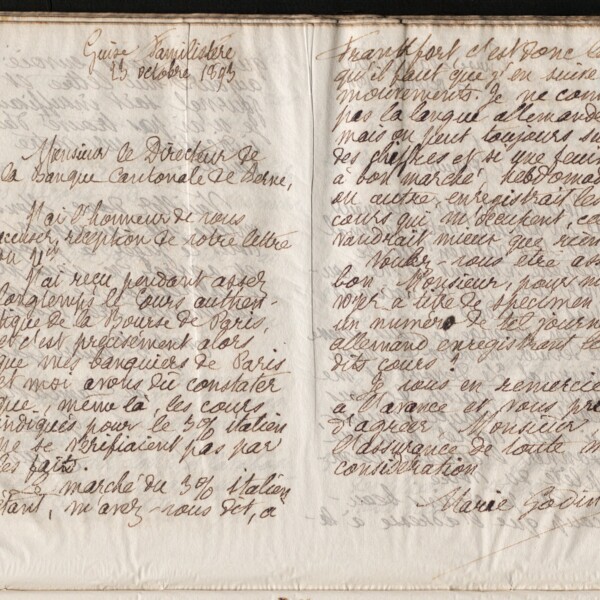 Guise Familistère
13 octobre 1893
Monsieur le Directeur de
la Banque Cantonale de Berne,
J'ai l'honneur de vous
accuser réception de votre lettre
du 11 ct
J'ai reçu pendant assez
longtemps le Cours authen-
tique de la Bourse de Paris,
et c'est précisément alors
que mes banquiers de Paris
et moi avons dû constater
que, même là, les cours
indiqués pour le 3% italien
ne se vérifiaient pas par
les faits.
Le marché du 3% italien
étant, m'avez-vous dit, à
Frankfort c'est donc là
qu'il faut que j'en suive
mouvements. Je ne con
pas la langue allemande
mais on peut toujours su
des chiffres et si une feui
à bon marché, hebdomad
ou autre, enregistrait les
cours qui m'occupent, ce
vaudrait mieux que rien
Voulez-vous être ass
bon Monsieur, pour m
voyer à titre de specimen
un numéro de tel journ
allemand enregistrant le
dits cours ?
Je vous en remercie
à l'avance et vous pr
d'agréer, Monsieur
l'assurance de toute m
considération
Marie Godin